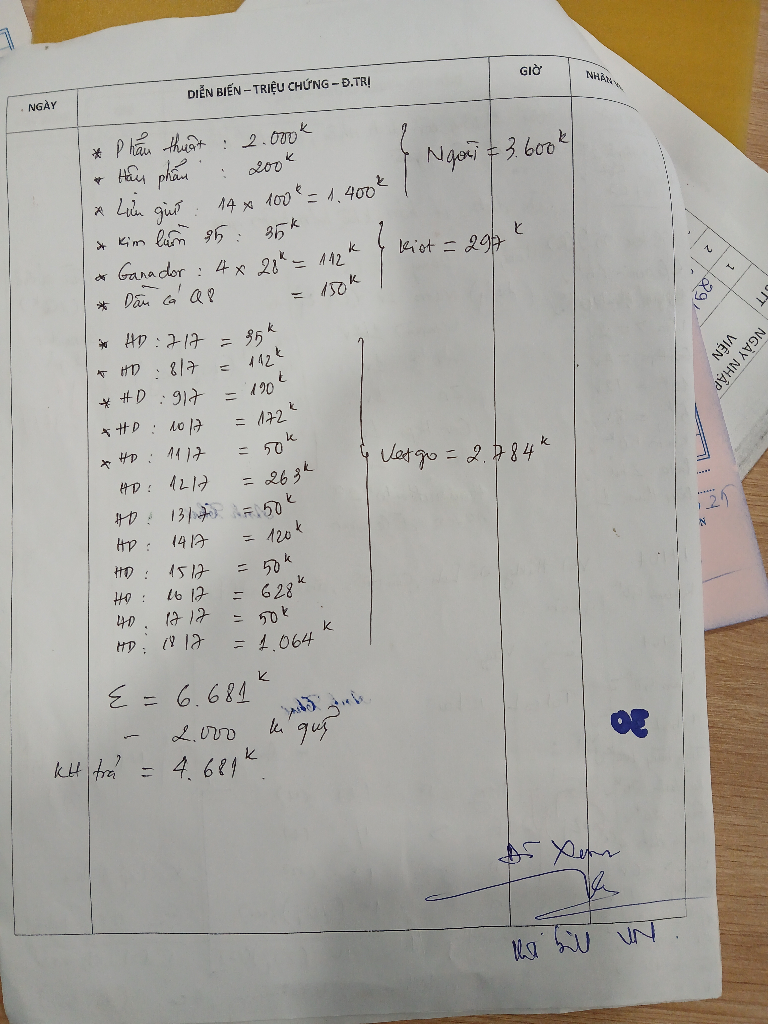 NGÀY
DIỄN BIẾN – TRIỆU CHỨNG – Đ.TRỊ
GIỜ
NHÂN
* Phẫu thuật : 2.000k
* Hậu phẫu : 200k
* Lưu giữ : 14 x 100k = 1.400k
Ngoài = 3.600k
* Kim luồn 35 : 35k
* Ganador : 4 x 28k = 112k
* Dầu cá Q8 = 150k
Kiot = 297k
* HD : 7/7 = 35k
* HD : 8/7 = 112k
* HD : 9/7 = 190k
* HD : 10/7 = 172k
* HD : 11/7 = 50k
HD : 12/7 = 263k
HD : 13/7 = 50k
HD : 14/7 = 120k
HD : 15/7 = 50k
HD : 16/7 = 628k
HD : 17/7 = 50k
HD : 18/7 = 1.064k
Vetgo = 2.784k
Σ = 6.681k
- 2.000 kí quỹ
KH trả = 4.681k
30
VN
NGÀY NHẬP
VIỆN
STT
1
2
29
25